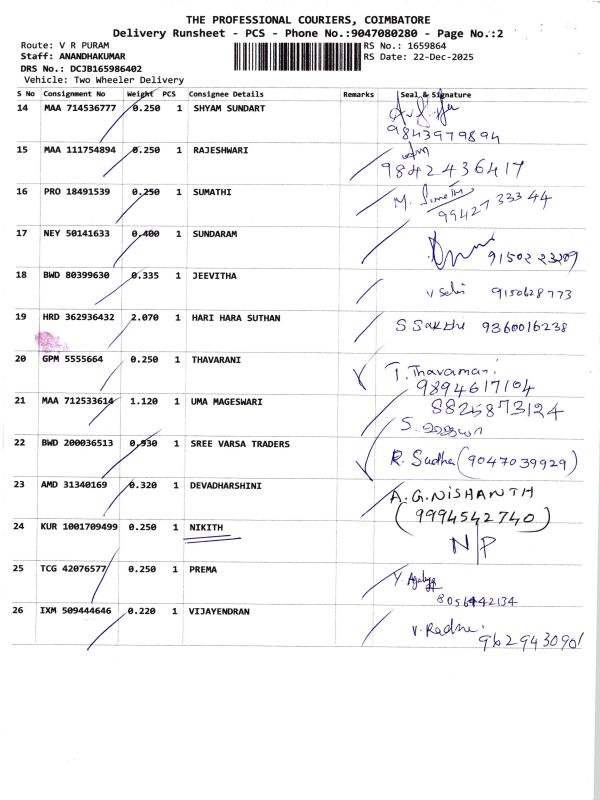 THE PROFESSIONAL COURIERS, COIMBATORE
Delivery Runsheet - PCS - Phone No.:9047080280 - Page No.:2
Route: V R PURAM
RS No.: 1659864
Staff: ANANDHAKUMAR
RS Date: 22-Dec-2025
DRS No.: DCJB165986402
Vehicle: Two Wheeler Delivery
S No Consignment No Weight PCS Consignee Details Remarks Seal & Signature
14 MAA 714536777 0.250 1 SHYAM SUNDART
9843979894
15 MAA 111754894 0.250 1 RAJESHWARI
9842436417
16 PRO 18491539 0.250 1 SUMATHI M. Sumathi
99427 333 44
17 NEY 50141633 0.400 1 SUNDARAM
91502 23209
18 BWD 80399630 0.335 1 JEEVITHA V Selvi 9150628773
19 HRD 362936432 2.070 1 HARI HARA SUTHAN S Sakthi 9360016238
20 GPM 5555664 0.250 1 THAVARANI T. Thavamani
9894617104
21 MAA 712533614 1.120 1 UMA MAGESWARI 8825873124
S.
22 BWD 200036513 0.930 1 SREE VARSA TRADERS R. Sudha (9047039929)
23 AMD 31340169 0.320 1 DEVADHARSHINI A.G.NISHANTH
(9994542740)
24 KUR 1001709499 0.250 1 NIKITH NP
25 TCG 42076577 0.250 1 PREMA Y.
8056442134
26 IXM 509444646 0.220 1 VIJAYENDRAN V. Radha
9629430901